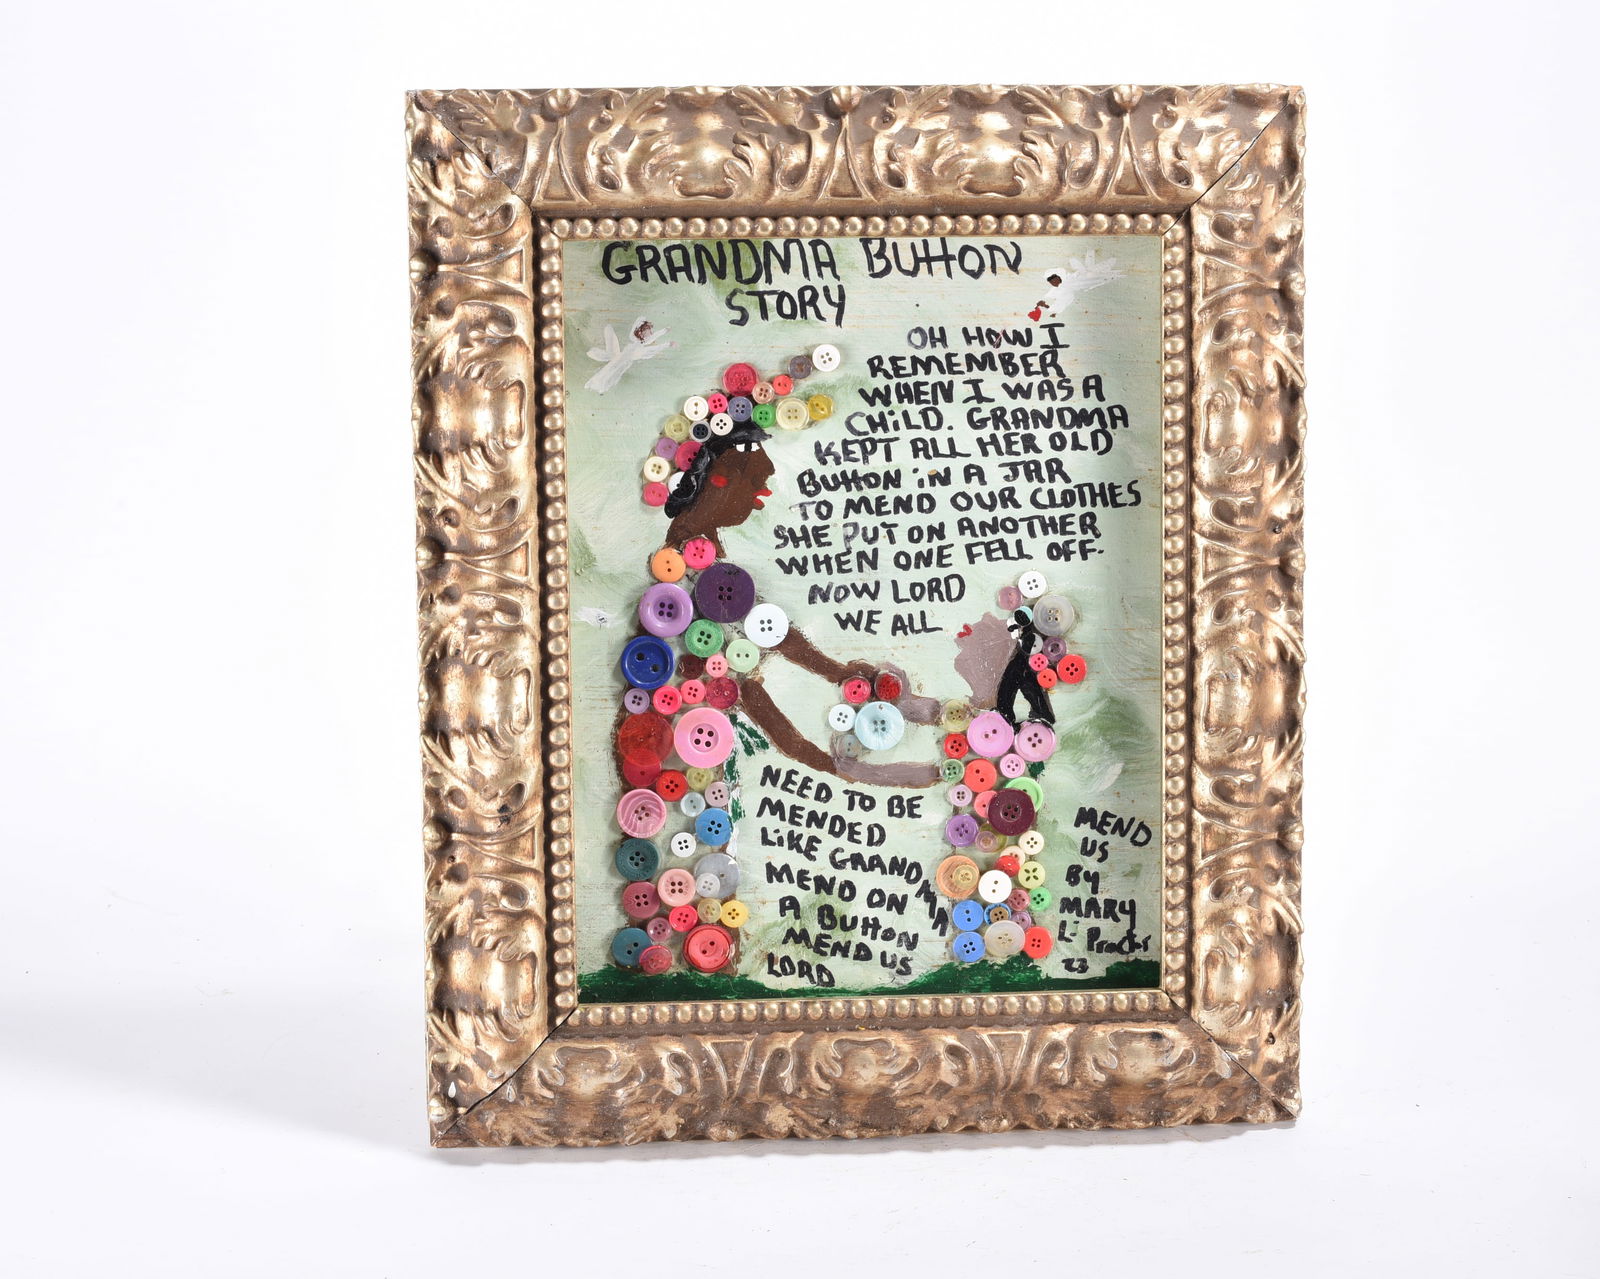 GRANDMA BUTTON
STORY
OH HOW I
REMEMBER
WHEN I WAS A
CHiLD. GRANDMA
KEPT ALL HER OLD
BUTTON iN A JAR
TO MEND OUR CLOTHES
SHE PUT ON ANOTHER
WHEN ONE FELL OFF.
NOW LORD
WE ALL
NEED TO BE
MENDED
LiKE GRANDMA
MEND ON
A BUTTON
MEND US
LORD
MEND
US
BY
MARY
L. Procter
23